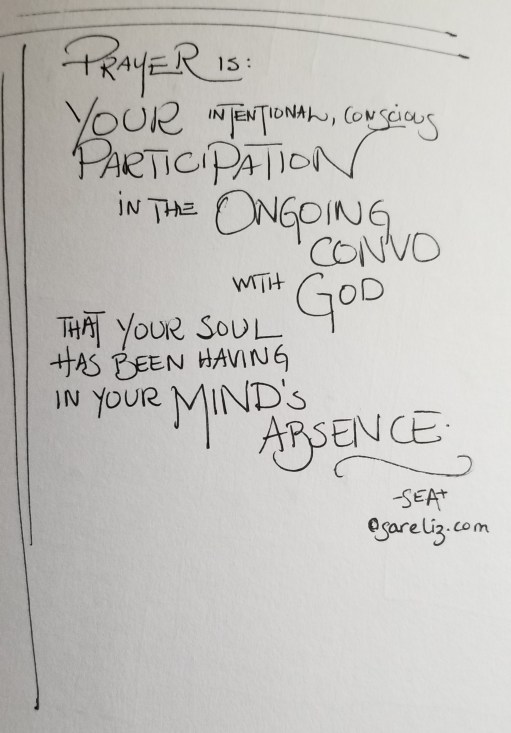 PRAYER IS:
YOUR INTENTIONAL, CONSCIOUS
PARTICIPATION
IN THE ONGOING
CONVO
WITH GOD
THAT YOUR SOUL
HAS BEEN HAVING
IN YOUR MIND'S
ABSENCE.
-SEA+
@sareliz.com